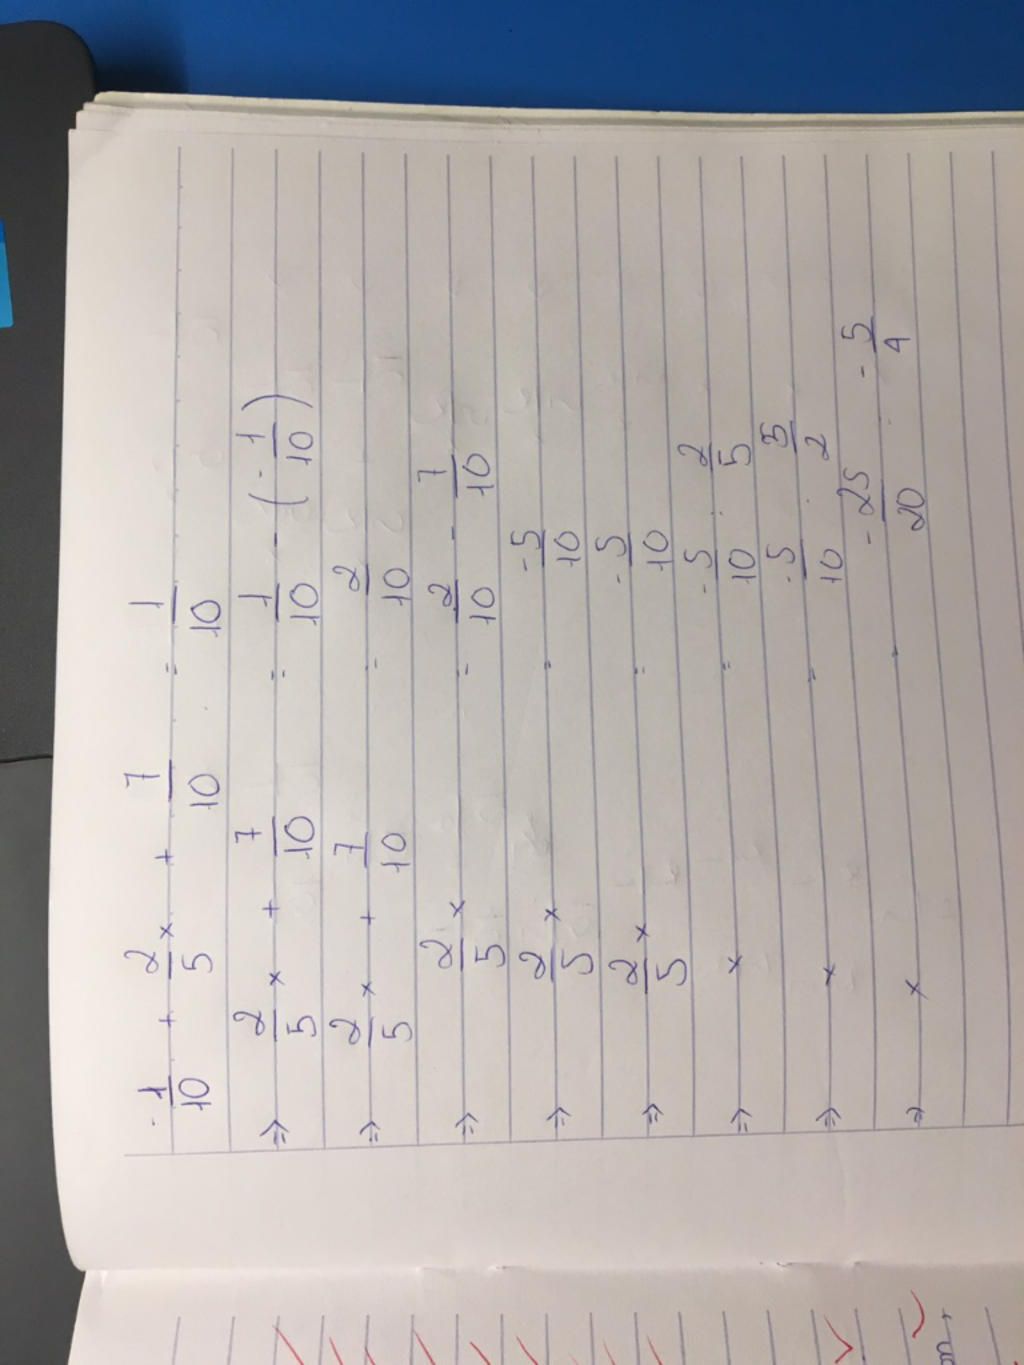 -1/10 + 2/5 x + 7/10 = 1/10
=> 2/5 x + 7/10 = 1/10 - (-1/10)
=> 2/5 x + 7/10 = 2/10
=> 2/5 x = 2/10 - 7/10
=> 2/5 x = -5/10
=> 2/5 x = -5/10
=> x = -5/10 : 2/5
=> x = -5/10 . 5/2
=> x = -25/20 = -5/4